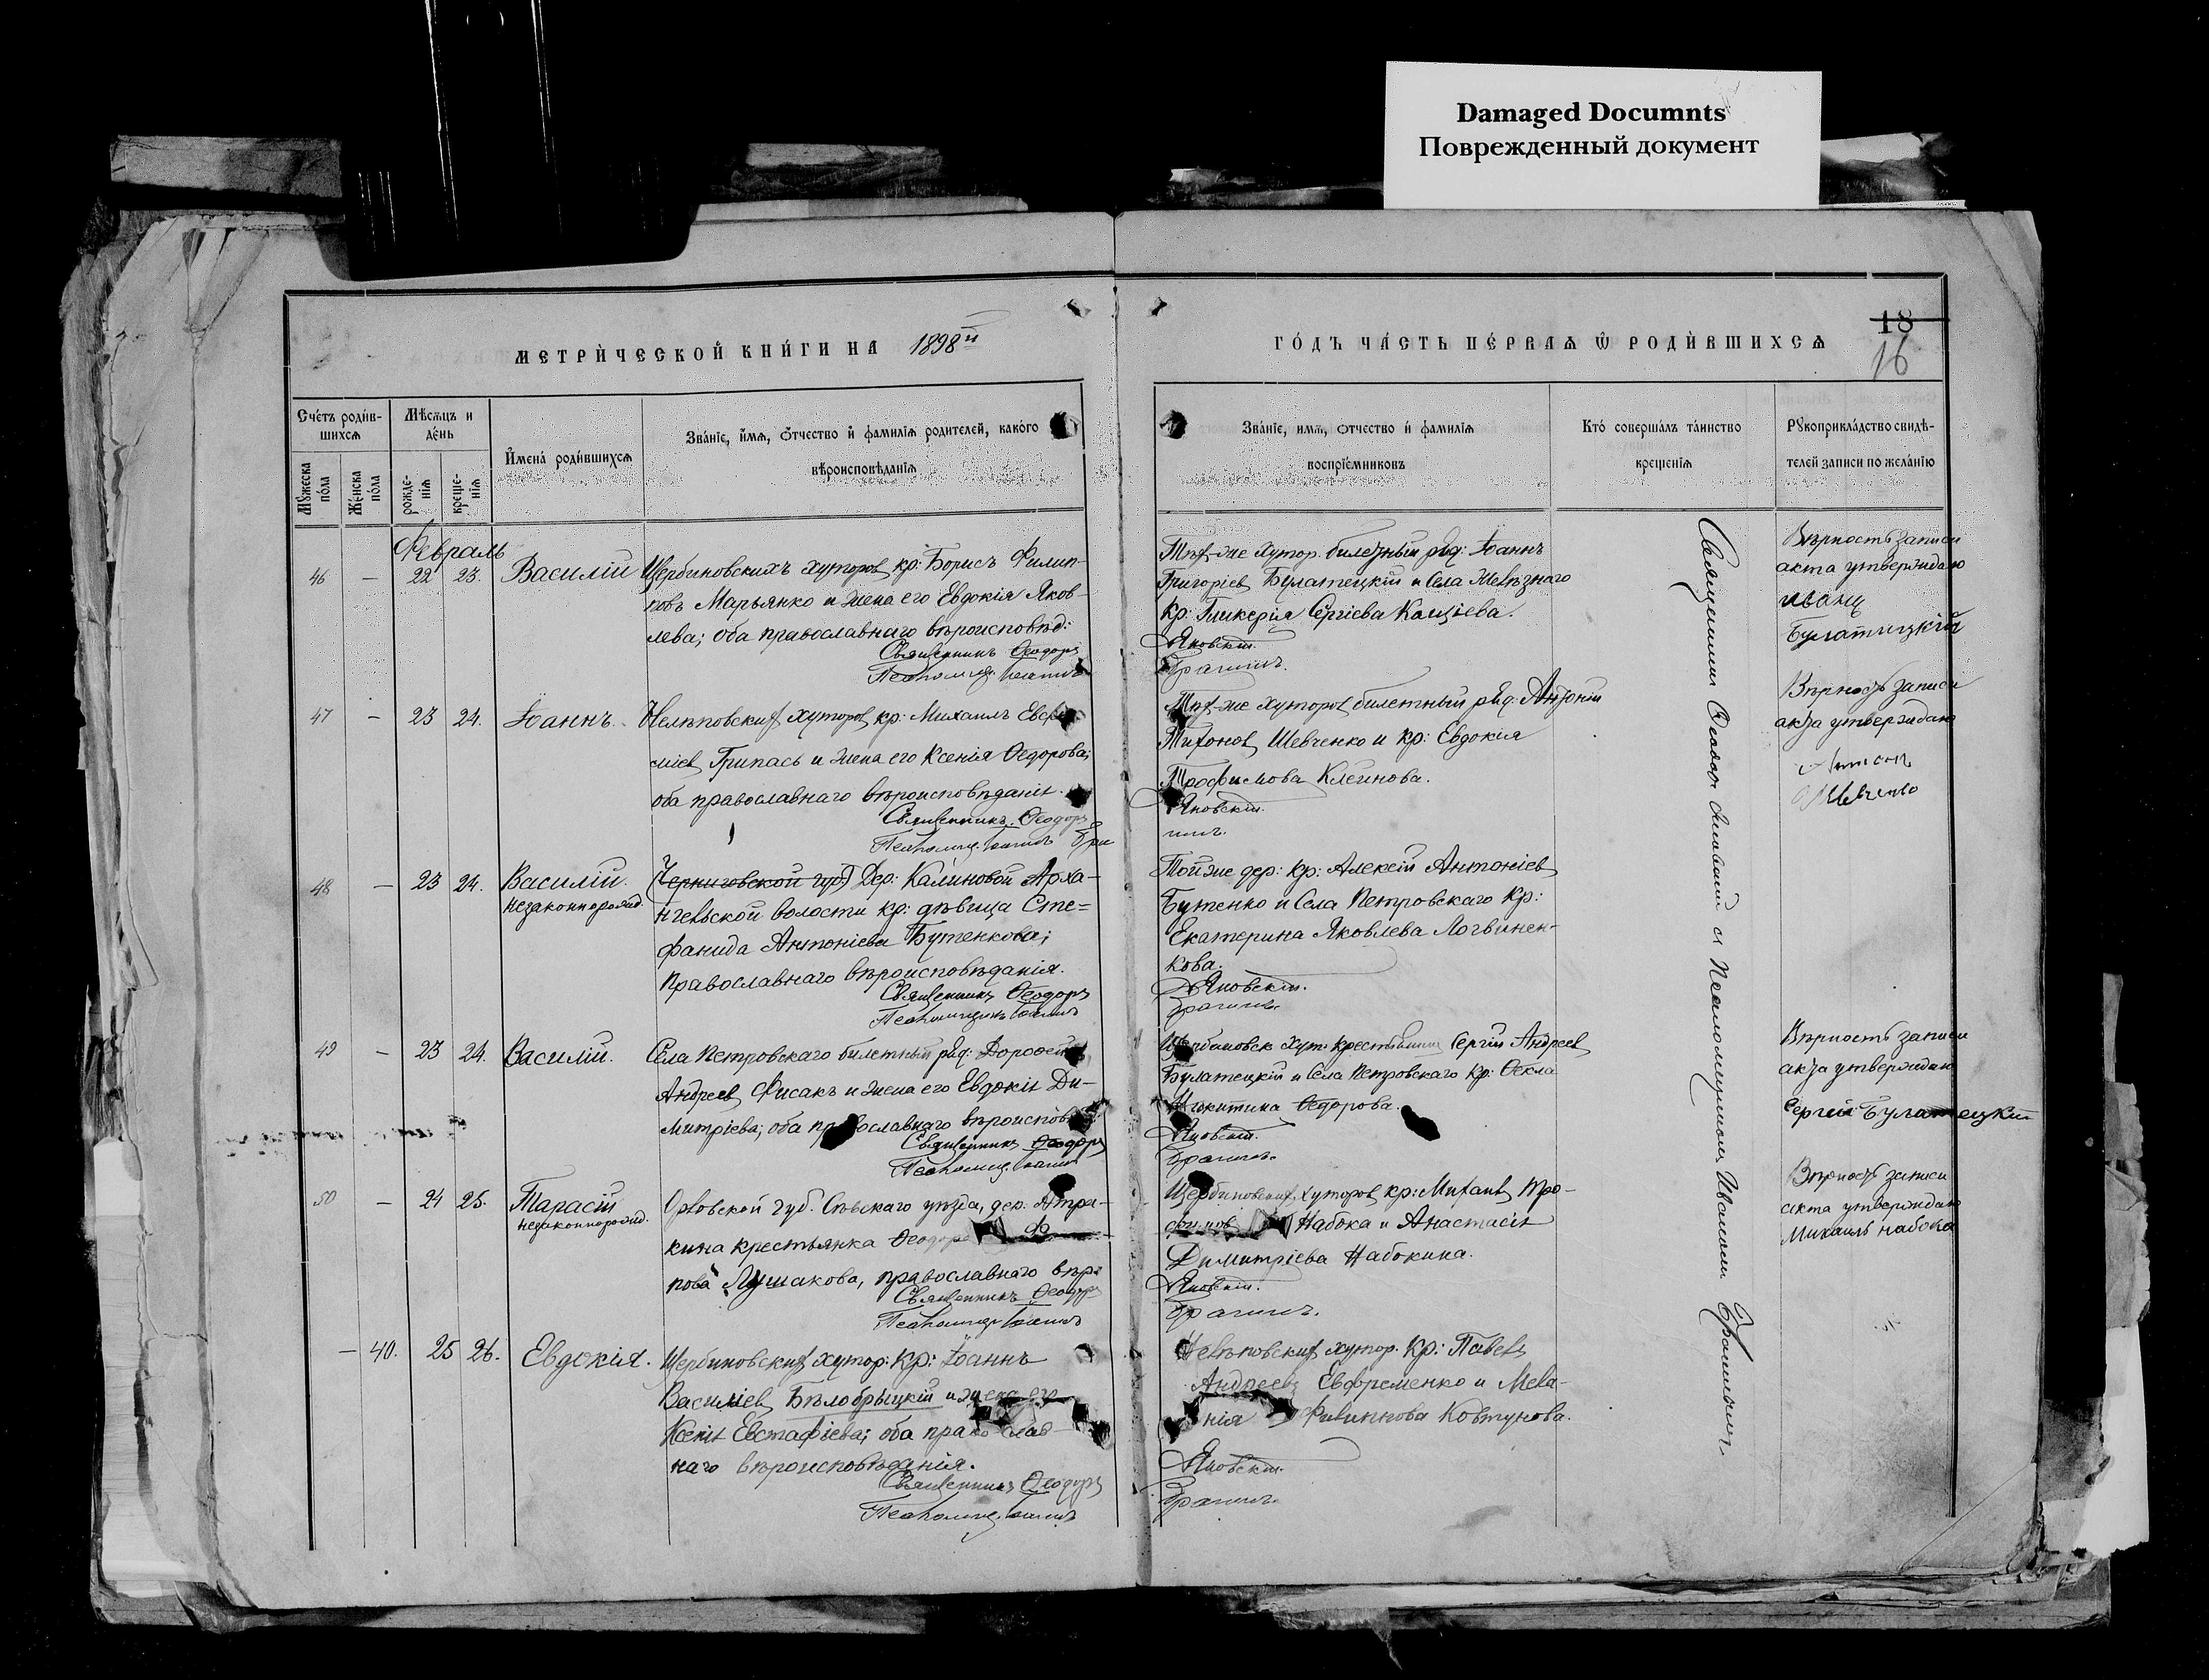 Damaged Documnts
Поврежденный документ
18
16
МЕТРИ́ЧЕСКОЙ КНИ́ГИ НА 1898й
ГО́ДЪ ЧА́СТЬ ПЕ́РВАѦ Ѡ РОДИ́ВШИХСѦ
Сче́тъ роди́в-
шихсѧ
Мꙋ́жеска
по́ла
Же́нска
по́ла
Мѣ́сѧцъ и
де́нь
рожде-
нїѧ
креще-
нїѧ
И҆мена̀ роди́вшихсѧ
Зва́нїе, и҆́мѧ, ѻ҆́тчество и҆ фами́лїѧ роди́телей, како́го
вѣроисповѣ́данїѧ
Зва́нїе, имѧ, отчество и́ фамилїѧ
воспрїе́мниковъ
Кто́ соверша́лъ та́инство
креще́нїѧ
Рꙋкоприкла́дство свидѣ́-
телей записи по жела́нїю
Февраль
46 – 22 23. Василій
Щербиновскихъ хуторов кр: Борисъ Филип-
повъ Марьянко и жена его Евдокія Яков-
лева; оба православнаго вѣроисповѣд:
Священникъ Ѳеодоръ
Тѣх-же хутор. билетный ряд: Іоаннъ
Григоріев Булатецкій и Села Желѣзнаго
Кр: Гликерія Сергіева
Яновскій.
Брагинъ.
Вѣрность записи
акта утверждаю
Иванъ
Булатицкій
47 – 23 24. Іоаннъ.
Нелѣповских хуторов кр: Михаилъ
Грипась и жена его Ксенія Ѳедорова;
оба православнаго вѣроисповѣданія.
Священникъ Ѳеодоръ
Тѣх-же хуторов билетный ряд: Антоній
Тихонов Шевченко и кр: Евдокія
Трофимова Клеинова.
Яновскій.
Вѣрность записи
акта утверждаю
Антонъ
Шевченко
48 – 23 24. Василій.
незаконнорожд.
(Черниговской губ) Дер: Калиновой Арха-
нгельской волости кр: дѣвица Сте=
фанида Антоніева Бутенкова;
православнаго вѣроисповѣданія.
Священникъ Ѳеодоръ
Той же дер: кр: Алексій Антоніев
Бутенко и Села Петровскаго Кр:
Екатерина Яковлева Логвинен-
кова.
Яновскій.
Брагинъ.
49 – 23 24. Василій.
Села Петровскаго билетный ряд: Дороѳей
Андреев Фисакъ и жена его Евдокія Ди-
митріева; оба православнаго вѣроисповѣд
Священникъ Ѳеодоръ
Щербиновск хут: крестьянинъ Сергій Андреев
Булатецкій и Села Петровскаго кр: Ѳекла
Никитина Ѳедорова.
Яновскій.
Брагинъ.
Вѣрность записи
акта утверждаю
Сергій Булатецкій
50 – 24 25. Тарасій
незаконнорожд.
Орловской губ. Сѣвскаго уѣзда, дер.
крестьянка
Лушакова, православнаго вѣро
Священникъ Ѳеодоръ
Щербиновских хуторов кр: Михаилъ Тро-
фимов Набока и Анастасія
Димитріева Набокина.
Яновскій.
Брагинъ.
Вѣрность записи
акта утверждаю
Михаилъ Набока
– 40. 25 26. Евдокія.
Щербиновских хутор: кр: Іоаннъ
Василіев Бѣлобрыцкій и жена его
Ксенія Евстафіева; оба православ-
наго вѣроисповѣданія.
Священникъ Ѳеодоръ
Нелѣповских хутор. кр: Павелъ
Андреевъ Евфременко и Мела-
нія Филиппова Ковтунова.
Яновскій.
Брагинъ.
Священникъ Ѳеодоръ Яновскій съ Псаломщикомъ Иваномъ Брагинымъ